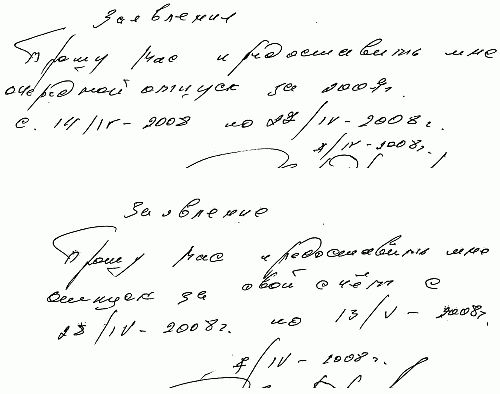 Заявления
Прошу Час предоставить мне
очередной отпуск за 2007г.
с. 14/IV-2008 по 27/IV-2008г.
8/IV-2008г.
Заявление
Прошу Час предоставить мне
отпуск за свой счёт с
28/IV-2008г. по 13/V-2008г.
8/IV-2008г.